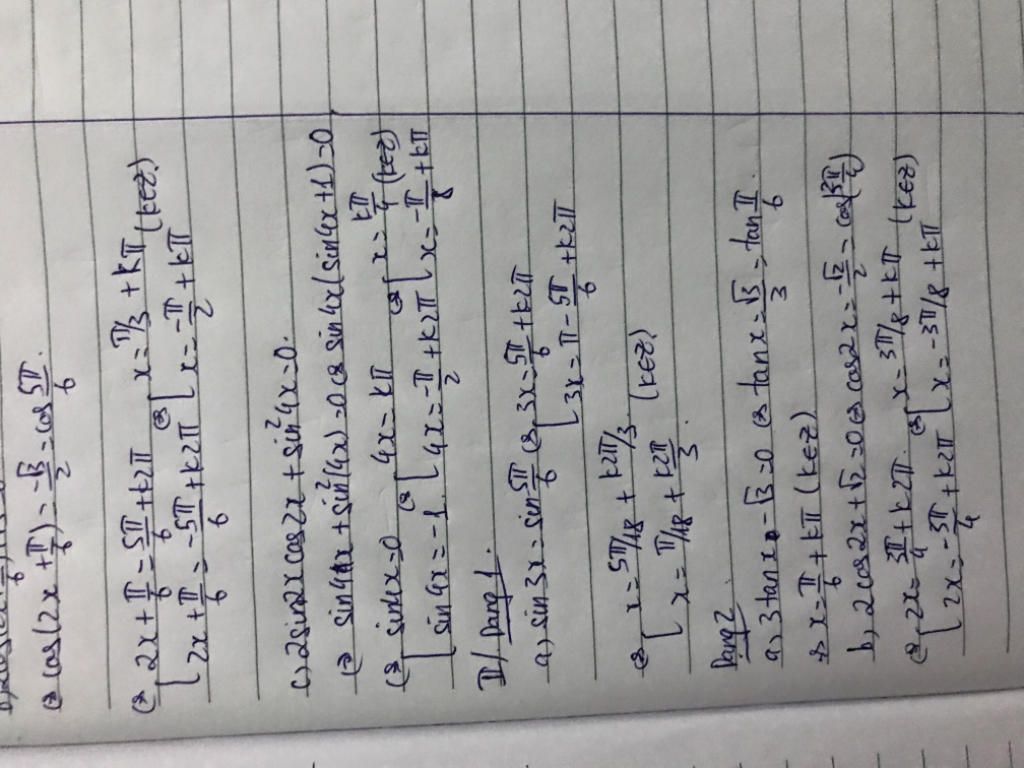 ⇔ cos(2x + π/6) = -√3/2 = cos 5π/6
⇔ [ 2x + π/6 = 5π/6 + k2π ⇔ [ x = π/3 + kπ (k∈Z)
2x + π/6 = -5π/6 + k2π x = -π/2 + kπ
c, 2sin2x cos2x + sin²4x = 0.
⇔ sin4x + sin²(4x) = 0 ⇔ sin4x(sin4x+1) = 0
⇔ [ sin4x = 0 ⇔ [ 4x = kπ ⇔ [ x = kπ/4 (k∈Z)
sin4x = -1. 4x = -π/2 + k2π x = -π/8 + kπ
II/ Dạng 1.
a, sin3x = sin 5π/6 ⇔ [ 3x = 5π/6 + k2π
3x = π - 5π/6 + k2π
⇔ [ x = 5π/18 + k2π/3 (k∈Z)
x = π/18 + k2π/3
Dạng 2.
a, 3tanx - √3 = 0 ⇔ tanx = √3/3 = tan π/6.
x = π/6 + kπ (k∈Z)
b, 2cos2x + √2 = 0 ⇔ cos2x = -√2/2 = cos(3π/4)
⇔ [ 2x = 3π/4 + k2π. ⇔ [ x = 3π/8 + kπ (k∈Z)
2x = -3π/4 + k2π x = -3π/8 + kπ